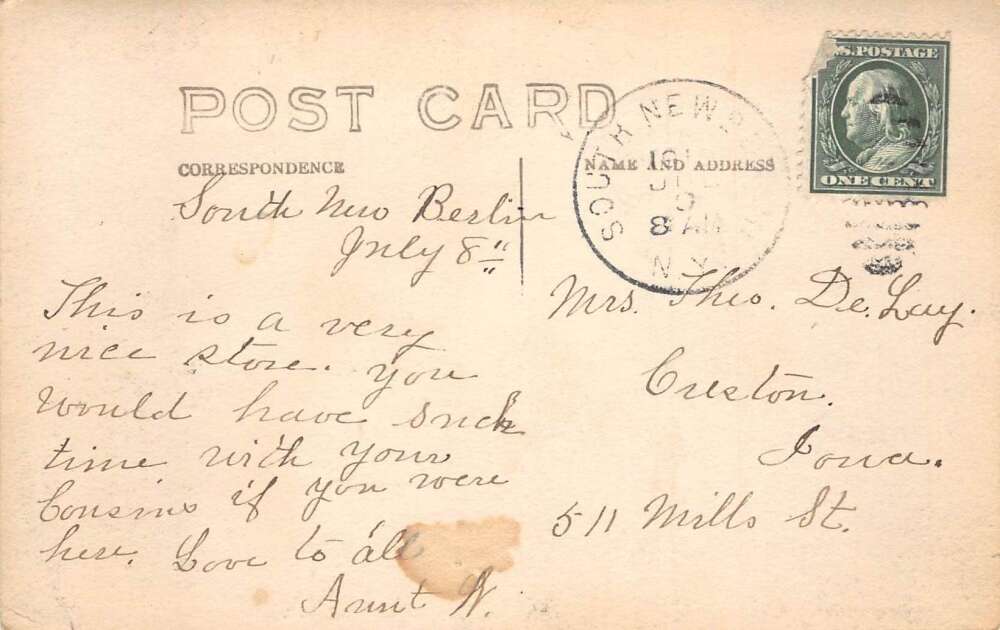 POST CARD
CORRESPONDENCE
South New Berlin
July 8"
This is a very
nice store. you
would have such
time with your
Cousins if you were
here. Love to all
Aunt W.
NAME AND ADDRESS
Mrs. Theo. De. Lay.
Creston.
Iowa.
511 Mills St.
SOUTH NEW
8 AM
N.Y.
U.S. POSTAGE
ONE CENT